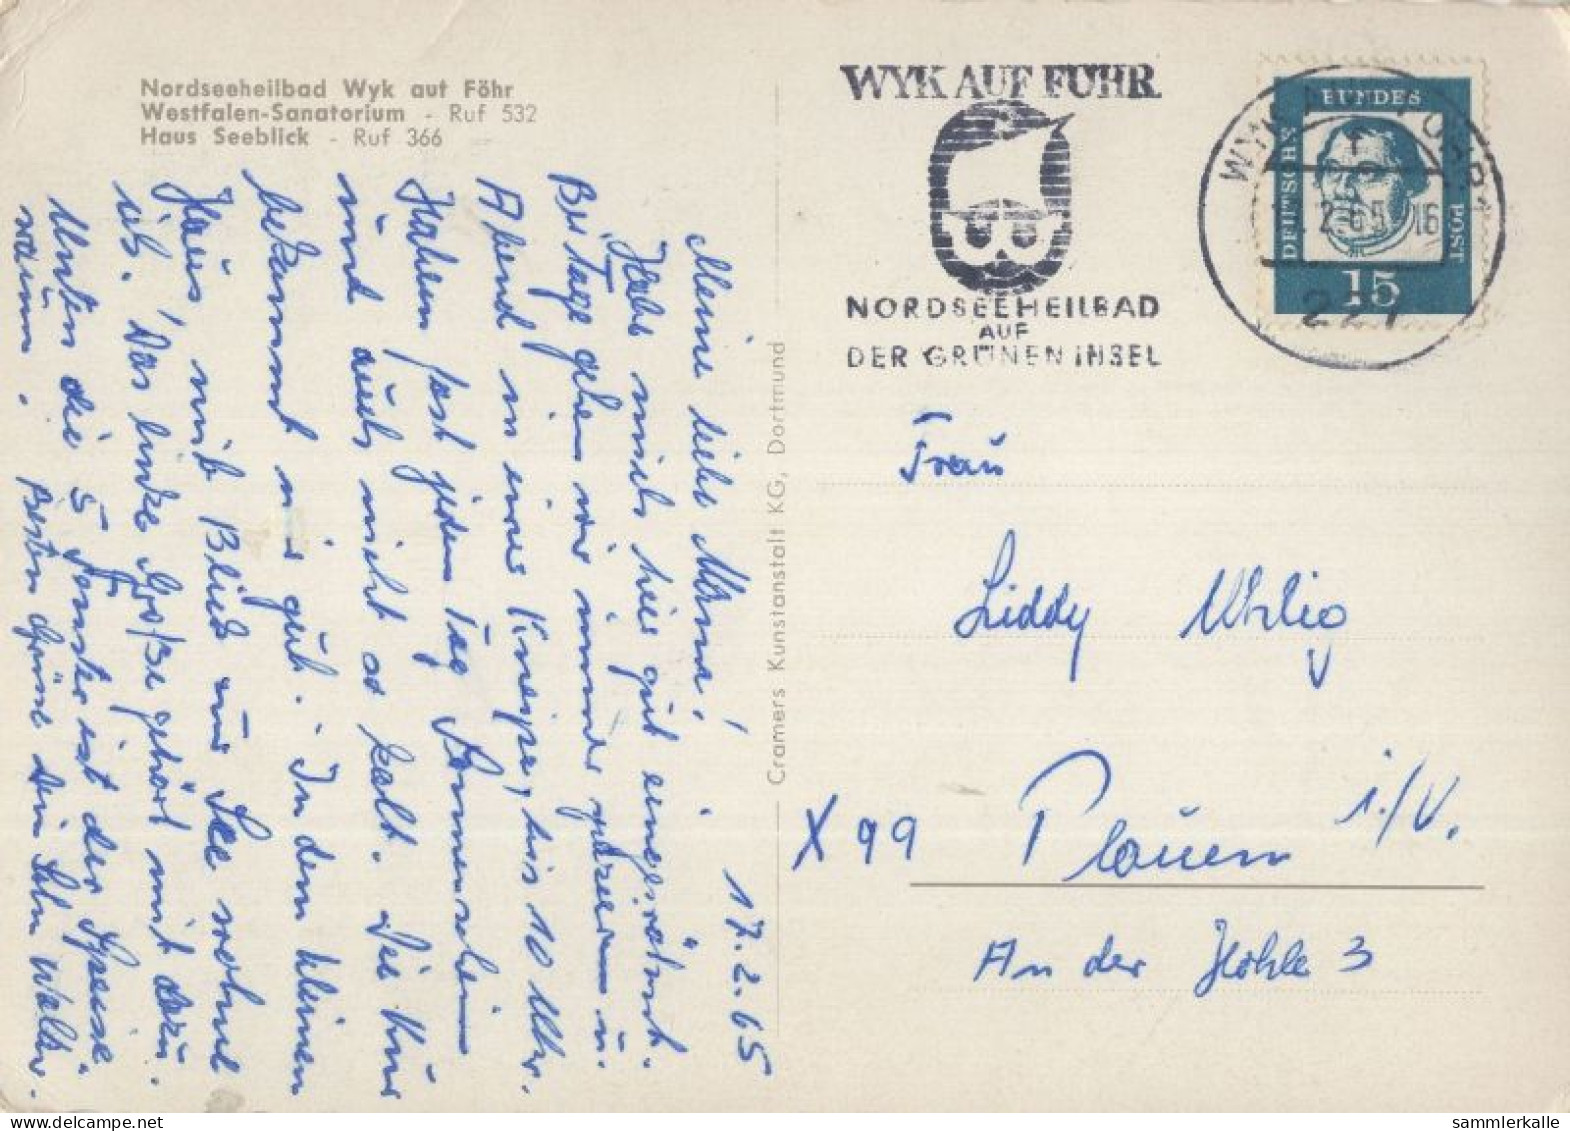 Nordseeheilbad Wyk auf Föhr
Westfalen-Sanatorium - Ruf 532
Haus Seeblick - Ruf 366
17.2.65
Meine liebe Mama!
Habe mich hier gut eingeräumt.
Bei Tage gehen wir immer spazieren u.
Abend in eine Kneipe, bis 10 Uhr.
Haben fast jeden Tag Sonnenschein
und auch nicht so kalt. Die Kur
bekommt mir gut. In dem kleinen
Haus, mit Blick zur See wohne
ich. Das linke Große gehört mit dazu.
Unten die 5 Fenster ist der Speise-
raum. Besten Grüße Dein Sohn Walter.
Cramers Kunstanstalt KG, Dortmund
WYK AUF FÖHR
NORDSEEHEILBAD
AUF
DER GRÜNEN INSEL
WYK AUF FÖHR 1
2.65 16
227
DEUTSCHE BUNDES POST
15
Frau
Liddy Uhlig
X 99 Plauen i./V.
An der Hohle 3
sammlerkalle